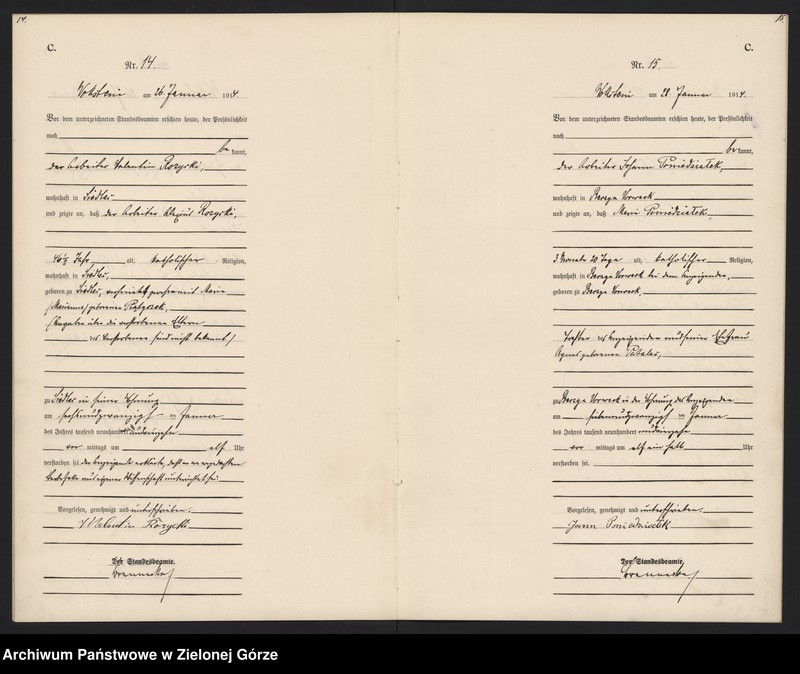 14.
C.
Nr. 14.
Wollstein am 26 Januar 1914
Vor dem unterzeichneten Standesbeamten erschien heute, der Persönlichkeit
nach
be kannt,
der Arbeiter Valentin Rozycki,
wohnhaft in Siedlec
und zeigte an, daß der Arbeiter Rozycki,
46 1/2 Jahr alt, katholischer Religion,
wohnhaft in Siedlec,
geboren zu Siedlec, verheiratet gewesen mit Marie
(Marianna) geborenen
(Angaben über die verstorbenen Eltern
des Verstorbenen sind nicht bekannt)
zu Siedlec in seiner Wohnung
am sechsundzwanzigsten Januar
des Jahres tausend neunhundert
vor mittags um elf Uhr
verstorben sei. Der Anzeigende erklärte, daß er von
Sterbefalle aus eigener Wissenschaft unterrichtet sei.
Vorgelesen, genehmigt und unterschrieben.
Walentin Rozycki
Der Standesbeamte.
15.
C.
Nr. 15.
Wollstein am 28 Januar 1914.
Vor dem unterzeichneten Standesbeamten erschien heute, der Persönlichkeit
nach
be kannt,
der Arbeiter Johann Poniedzialek,
wohnhaft in Vorwerk
und zeigte an, daß Marie Poniedzialek,
3 Monate 20 Tage alt, katholischer Religion,
wohnhaft in Vorwerk bei dem Anzeigenden,
geboren zu Vorwerk,
Tochter des Anzeigenden und seiner Ehefrau
Agnes geborenen
zu Vorwerk in der Wohnung des Anzeigenden
am siebenundzwanzigsten Januar
des Jahres tausend neunhundert
vor mittags um elf ein halb Uhr
verstorben sei.
Vorgelesen, genehmigt und unterschrieben.
Poniedzialek
Der Standesbeamte.
Archiwum Państwowe w Zielonej Górze